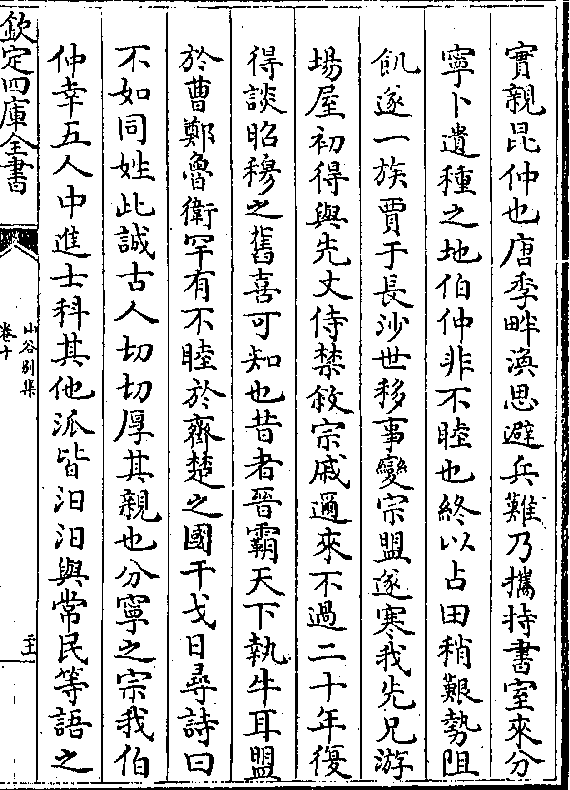 實親昆仲也唐季畔渙思避兵難乃攜持書室來分
寧卜遺種之地伯仲非不睦也終以占田稍艱勢阻
飢遂一族賈于長沙世移事變宗盟遂寒我先兄游
場屋初得與先丈侍禁敘宗戚邇來不過二十年復
得談昭穆之舊喜可知也昔者晉霸天下執牛耳盟
於曹鄭魯衛罕有不睦於齊楚之國干戈日尋詩曰
不如同姓此誠古人切切厚其親也分寧之宗我伯
仲幸五人中進士科其他派皆汨汨與常民等語之
欽定四庫全書
山谷別集
卷十